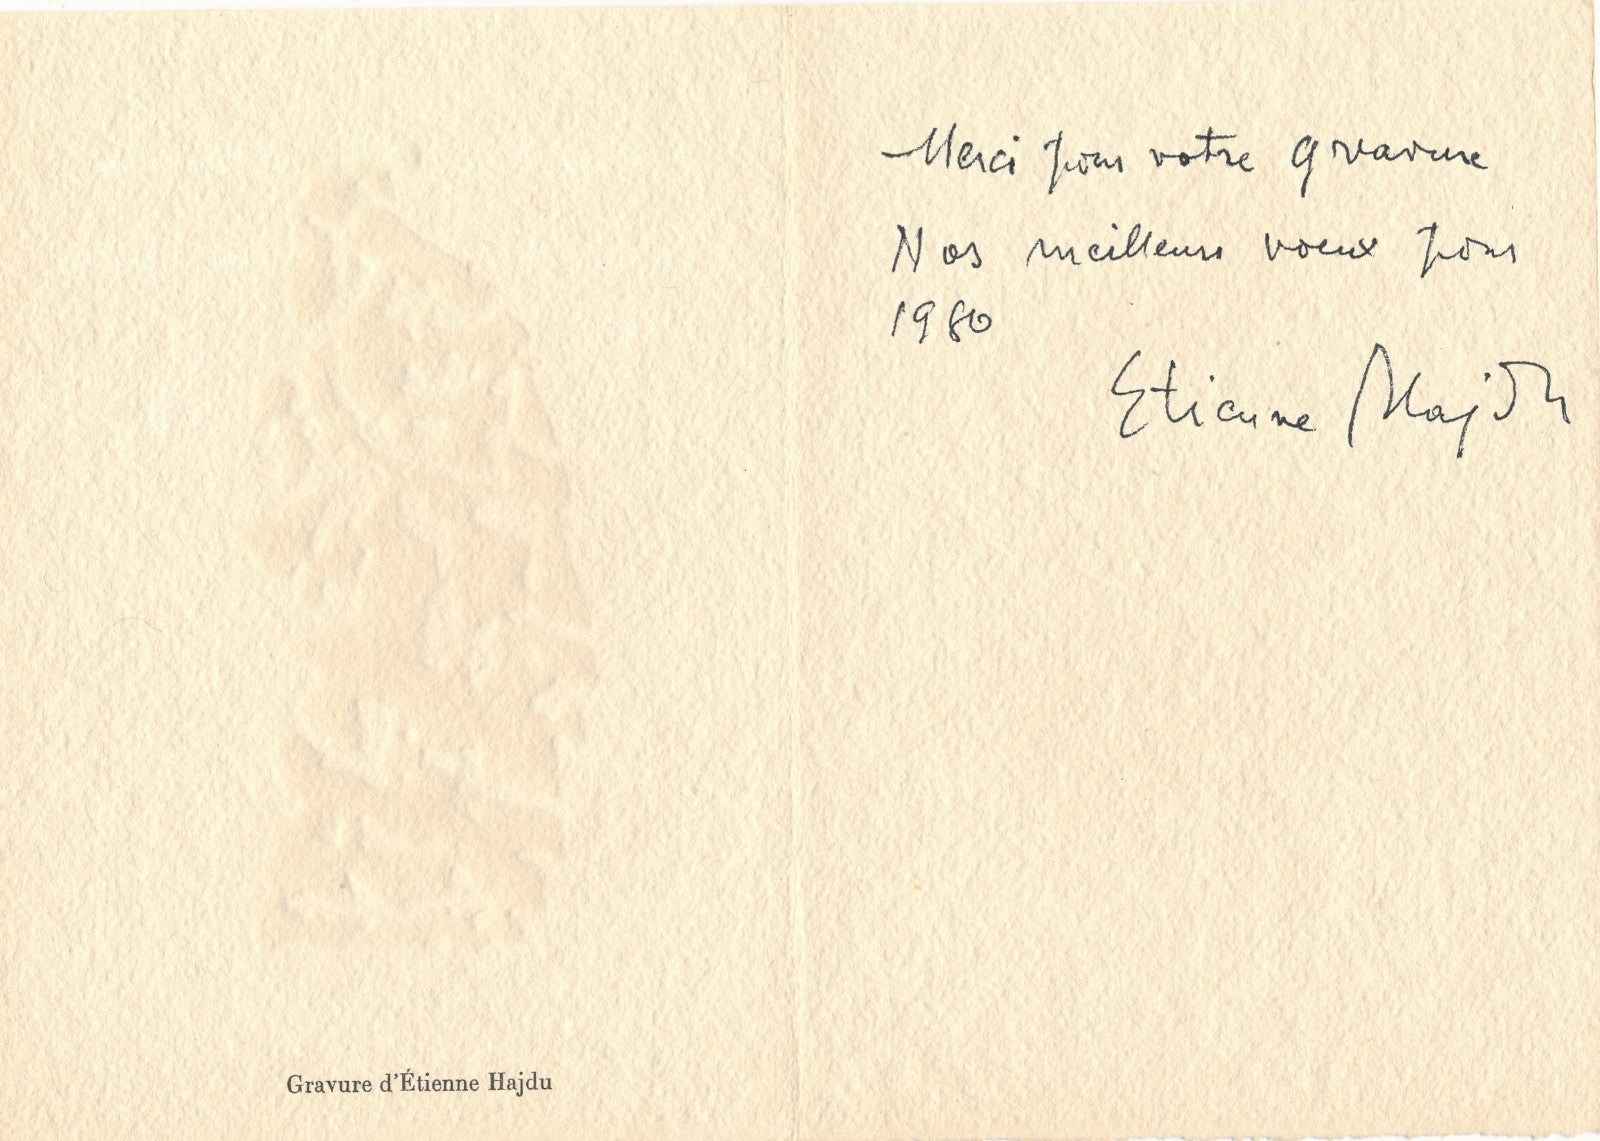 Merci pour votre gravure
Nos meilleurs voeux pour
1980
Etienne Hajdu
Gravure d'Étienne Hajdu